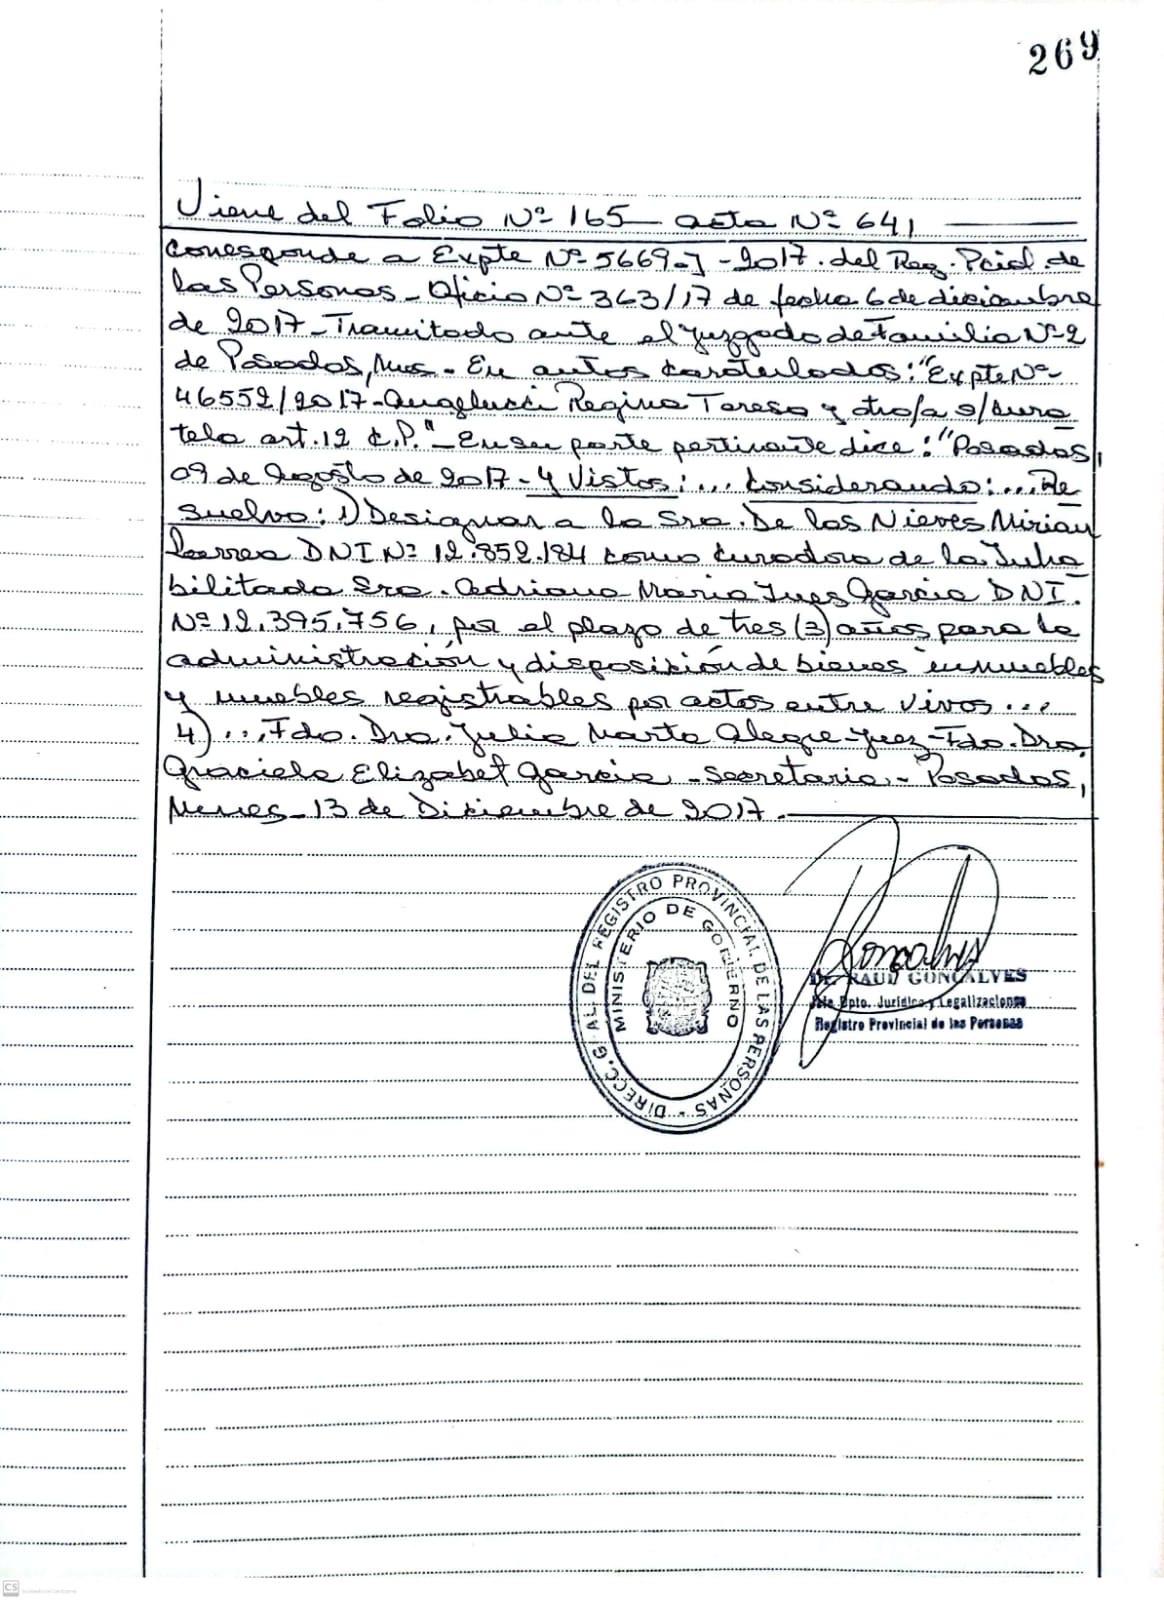 269
Viene del Folio Nº 165 acta Nº 641
corresponde a Expte Nº 5669-J-2017. del Reg. Pcial. de
las Personas - Oficio Nº 363/17 de fecha 6 de diciembre
de 2017 - Tramitado ante el Juzgado de Familia Nº 2
de Posadas, Mnes - En autos caratulados: "Expte Nº
46552/2017 - Regina Teresa y otro/a s/ cura
tela art. 12 C.P." - En su parte pertinente dice: "Posadas,
09 de Agosto de 2017 - Y Vistos: ... Considerando: ... Re
suelvo: 1) Designar a la Sra. De las Nieves Mirian
Correa DNI Nº 12.852.184 como curadora de la Inha
bilitada Sra. Adriana Maria Ines Garcia DNI.
Nº 12.395.756, por el plazo de tres (3) años para la
administración y disposición de bienes inmuebles
y muebles registrables por actos entre vivos ...
4) ... Fdo. Dra. Julia Marta Alegre - Juez - Fdo. Dra.
Graciela Elizabet Garcia - Secretaria - Posadas,
Mnes - 13 de Diciembre de 2017.
DIRECC. GRAL. DEL REGISTRO PROVINCIAL DE LAS PERSONAS -
MINISTERIO DE GOBIERNO
Gonçalves
Dr. RAUL GONCALVES
Jefe Dpto. Jurídico y Legalizaciones
Registro Provincial de las Personas
CS